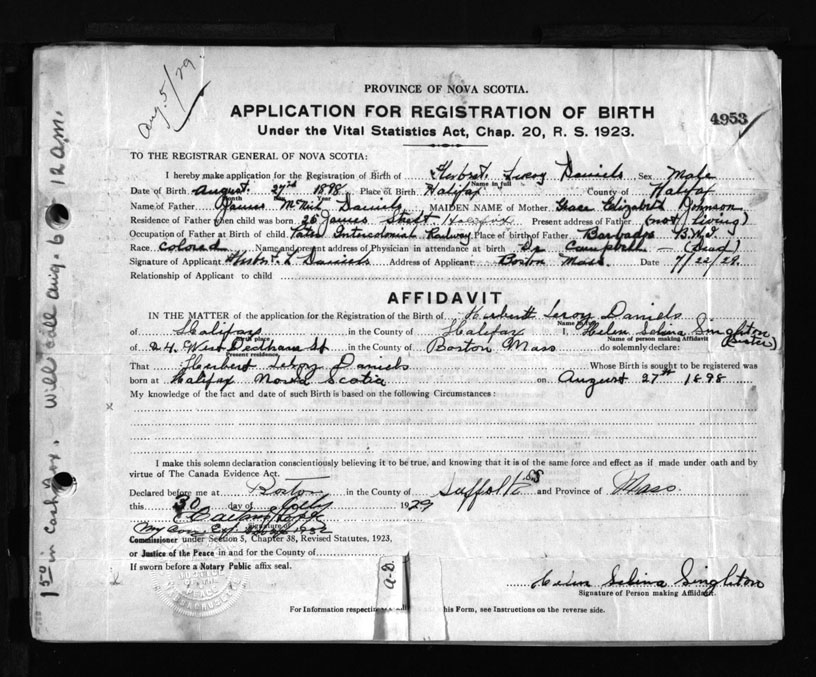 Aug. 5/29
PROVINCE OF NOVA SCOTIA.
APPLICATION FOR REGISTRATION OF BIRTH
4953
Under the Vital Statistics Act, Chap. 20, R. S. 1923.
TO THE REGISTRAR GENERAL OF NOVA SCOTIA:
I hereby make application for the Registration of Birth of Herbert Leroy Daniels Sex Male
Name in full
Date of Birth August 27th 1898 Place of Birth Halifax County of Halifax
Month Year
Name of Father James McNeil Daniels MAIDEN NAME of Mother Grace Elizabeth Johnson
Residence of Father when child was born 26 James Street Halifax Present address of Father (not living)
Occupation of Father at Birth of child Intercolonial Railway Place of birth of Father Barbados B.W.I.
Race colored Name and present address of Physician in attendance at birth Dr Campbell - (Dead)
Signature of Applicant Herbert L Daniels Address of Applicant Boston Mass. Date 7/22/29.
Relationship of Applicant to child
AFFIDAVIT
IN THE MATTER of the application for the Registration of the Birth of Herbert Leroy Daniels
Name in full
of Halifax in the County of Halifax I, Helen Selina Singhton
Birth place Name of person making Affidavit (Sister)
of 24 West Dedham St in the County of Boston Mass do solemnly declare:
Present residence
That Herbert Leroy Daniels Whose Birth is sought to be registered was
born at Halifax Nova Scotia on August 27th 1898
My knowledge of the fact and date of such Birth is based on the following Circumstances:
I make this solemn declaration conscientiously believing it to be true, and knowing that it is of the same force and effect as if made under oath and by
virtue of The Canada Evidence Act.
Declared before me at Boston in the County of Suffolk SS and Province of Mass
this 30 day of July 1929
My Com. Ex. 1932
Commissioner under Section 5, Chapter 38, Revised Statutes, 1923,
or Justice of the Peace in and for the County of
If sworn before a Notary Public affix seal.
Helen Selina Singhton
Signature of Person making Affidavit.
For Information respecting this Form, see Instructions on the reverse side.
a-D.
1.50 in Cash Box. - Will call Aug. 6 12 a.m.